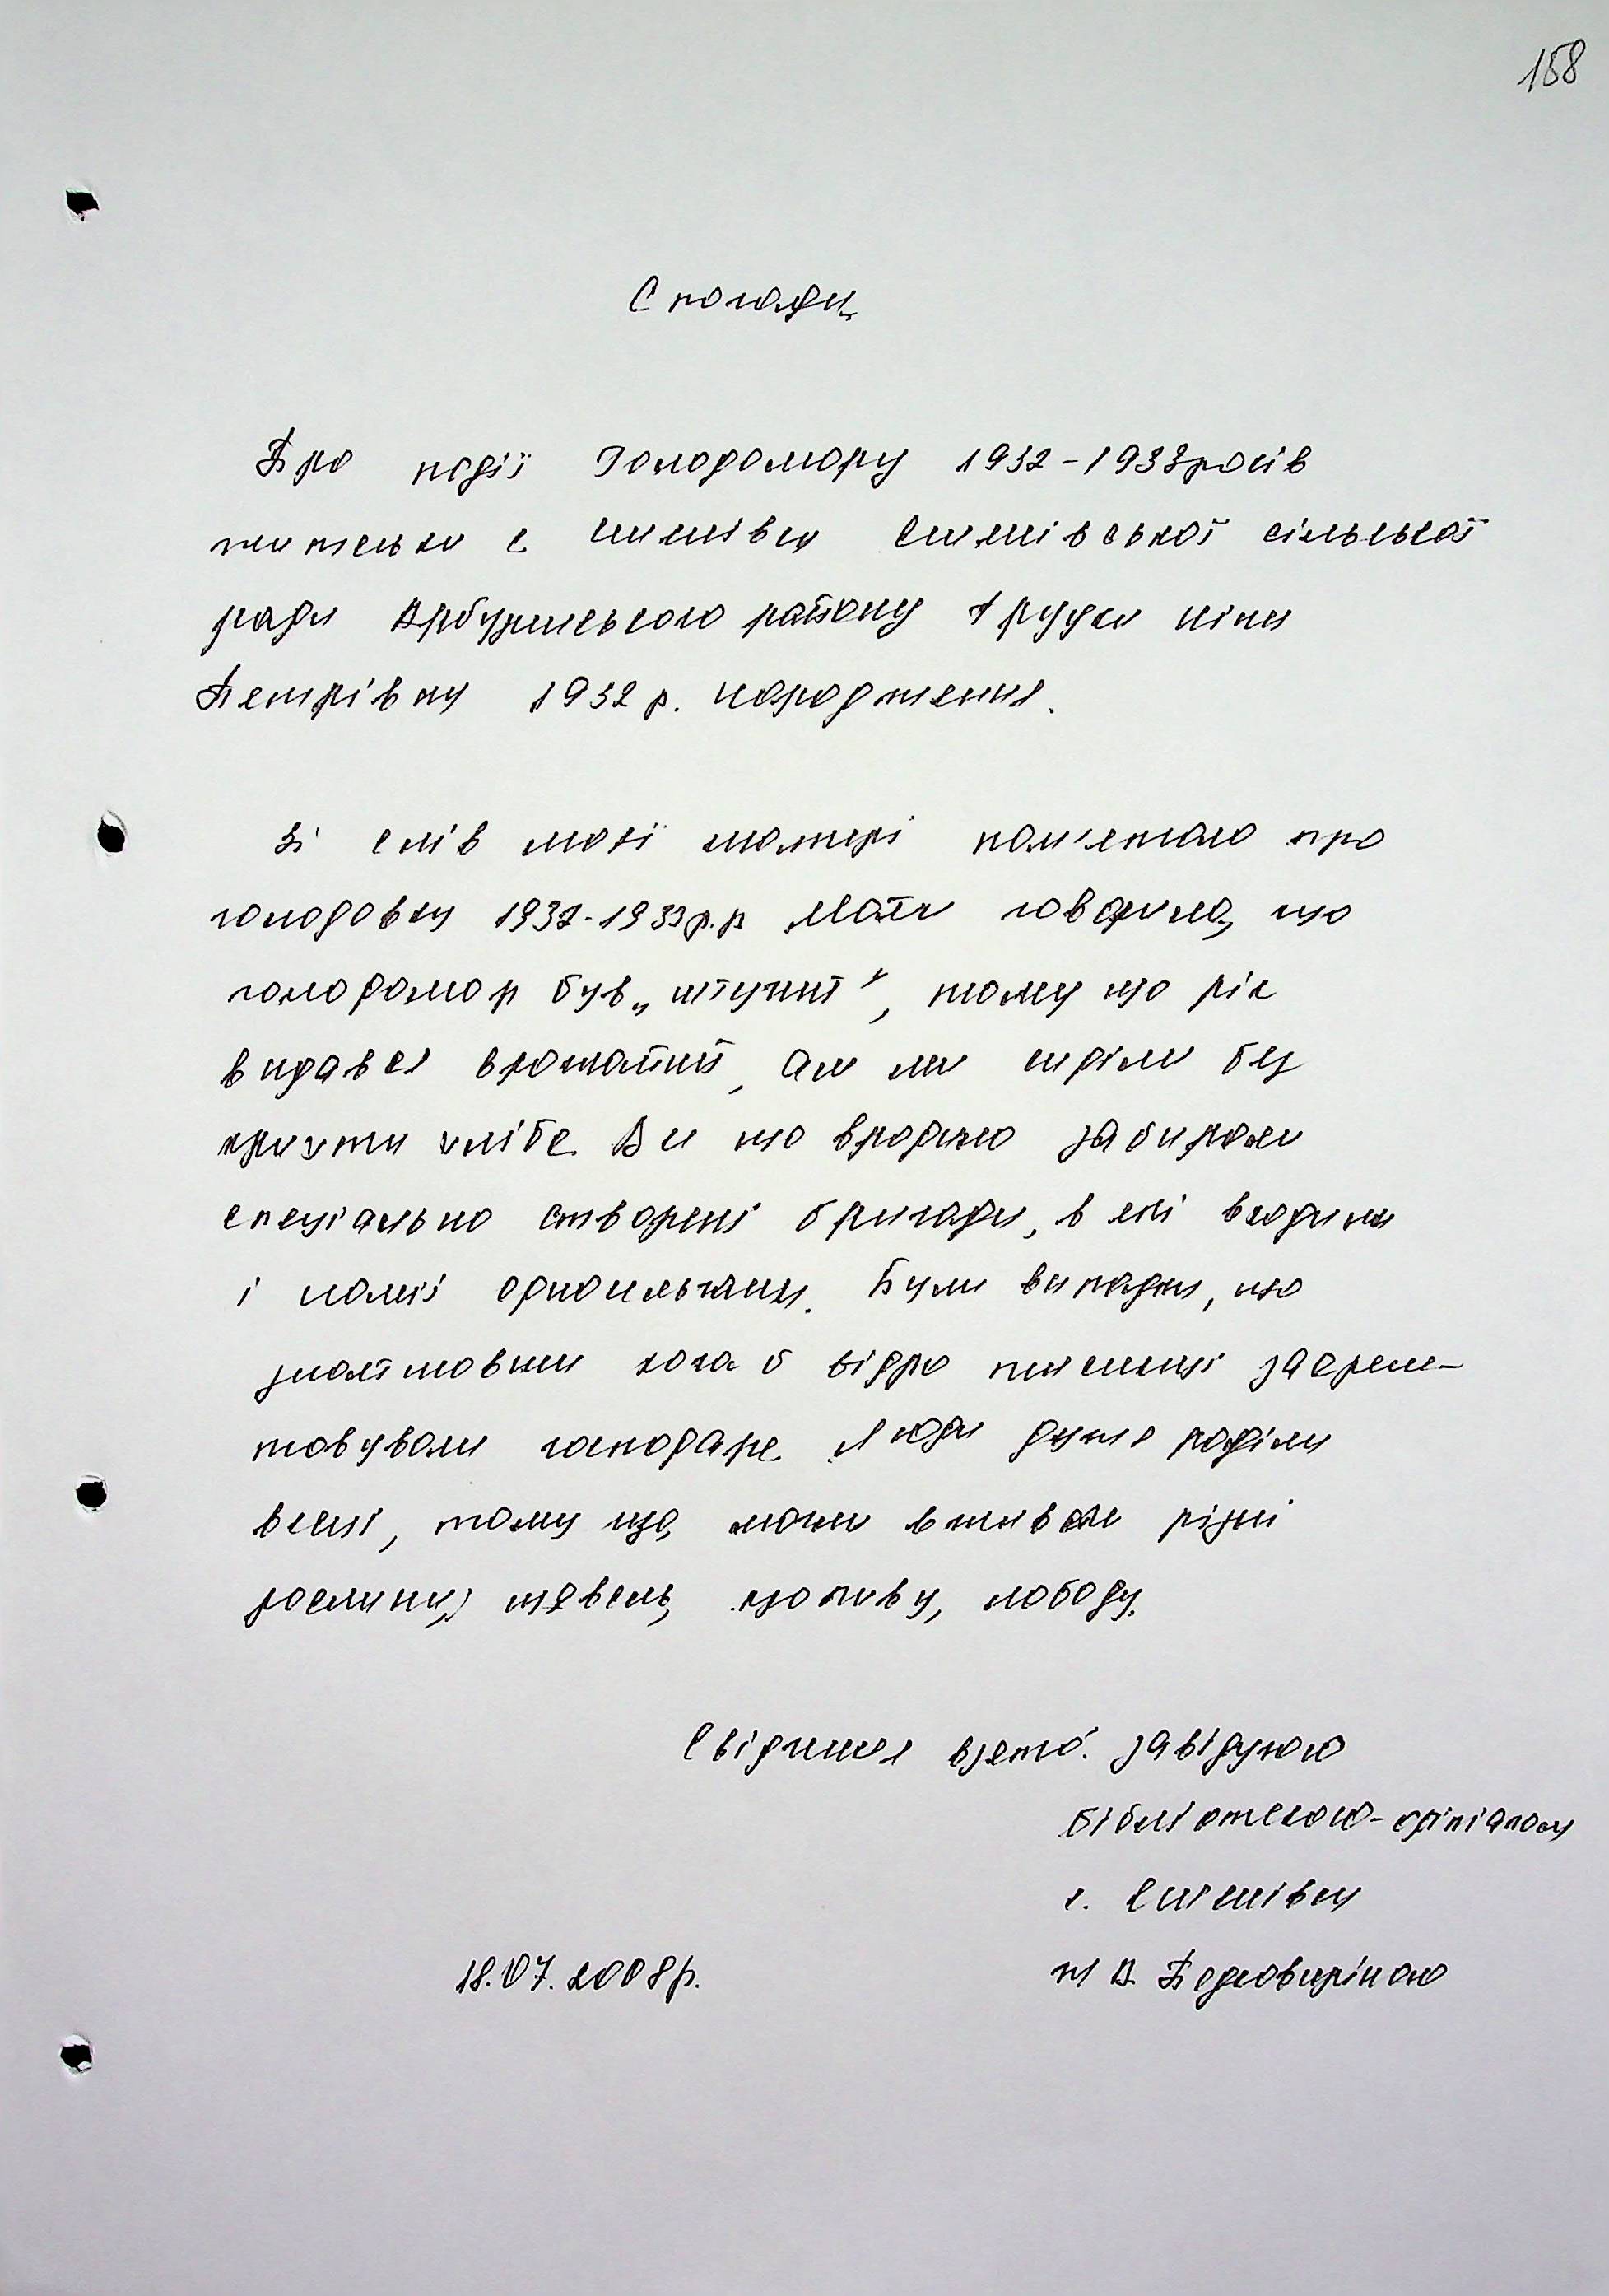 158
Спогади
Про події Голодомору 1932-1933років
жительки с Семенівки Семенівської сільської
ради Арбузинського району Ніни
Петрівни 1932 р. народження.
Зі слів моєї матері пам'ятаю про
голодовку 1932-1933р.р Мати говорила, що
голодомор був „штучний", тому що рік
видався врожайний, але ми сиділи без
крихти хліба. Все що вродило забирали
спеціально створені бригади, в які входили
і наші односельчани. Були випадки, що
знайшовши хоча б відро пшениці заареш-
товували господаря. Люди дуже раділи
весні, тому що, могли вживати різні
рослини, щавель, кропиву, лободу.
Свідчення взято завідуючою
бібліотекою-філіалом
с. Семенівки
18.07.2008р.